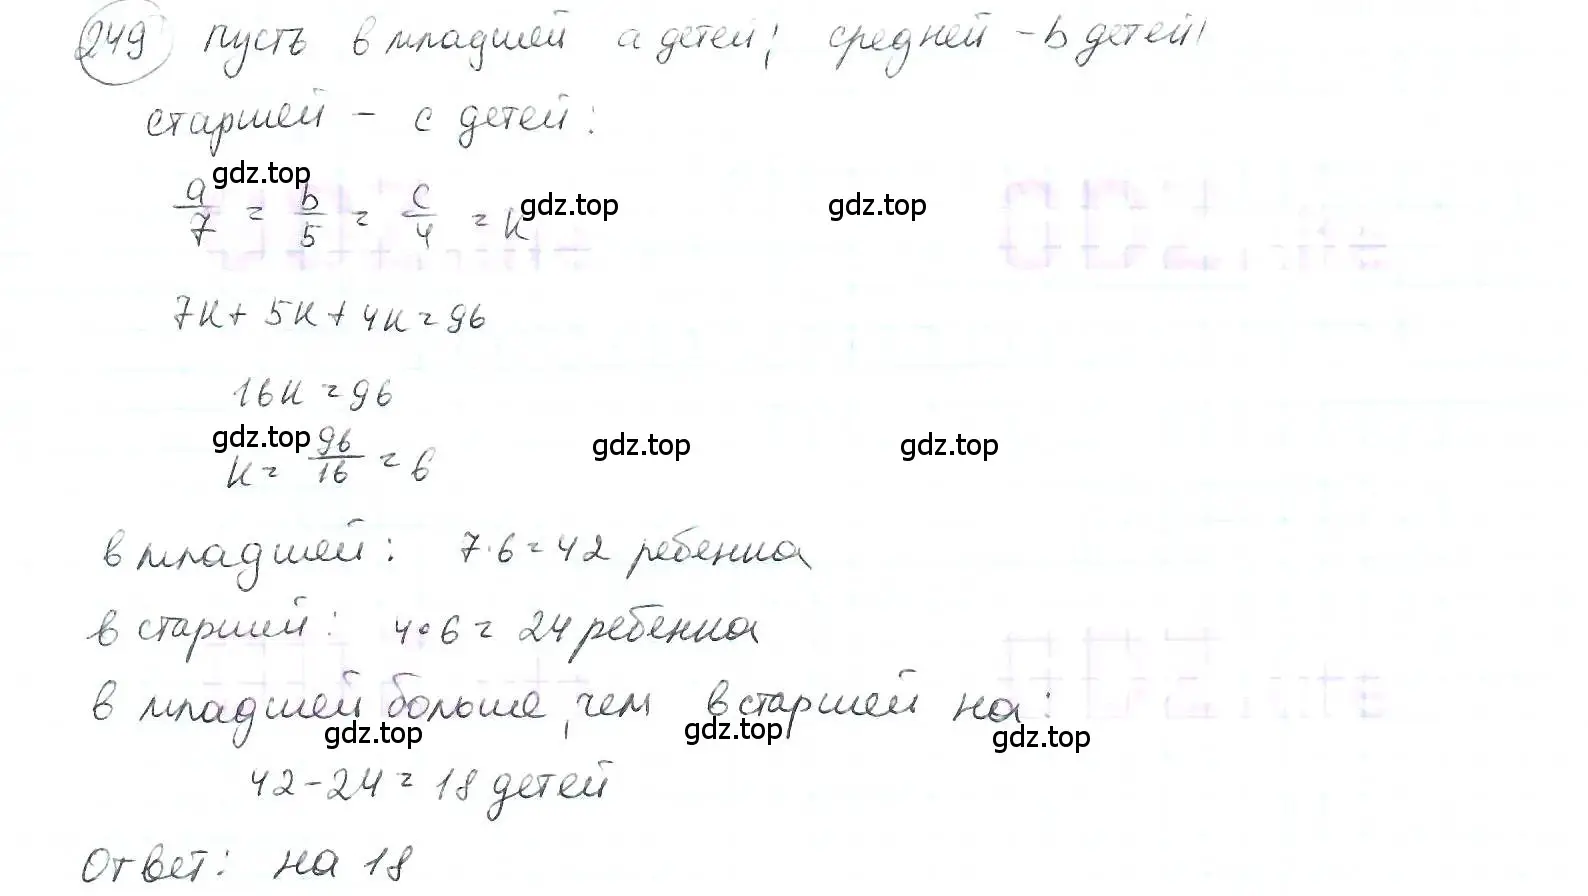 249 пусть в младшей a детей; средней - b детей;
старшей - c детей:
gdz.top
a/7 = b/5 = c/4 = k gdz.top gdz.top
7k + 5k + 4k = 96
16k = 96
gdz.top gdz.top gdz.top
k = 96/16 = 6
в младшей: 7·6 = 42 ребенка
в старшей: 4·6 = 24 ребенка
в младшей больше, чем в старшей на:
gdz.top gdz.top gdz.top
42 - 24 = 18 детей
Ответ: на 18